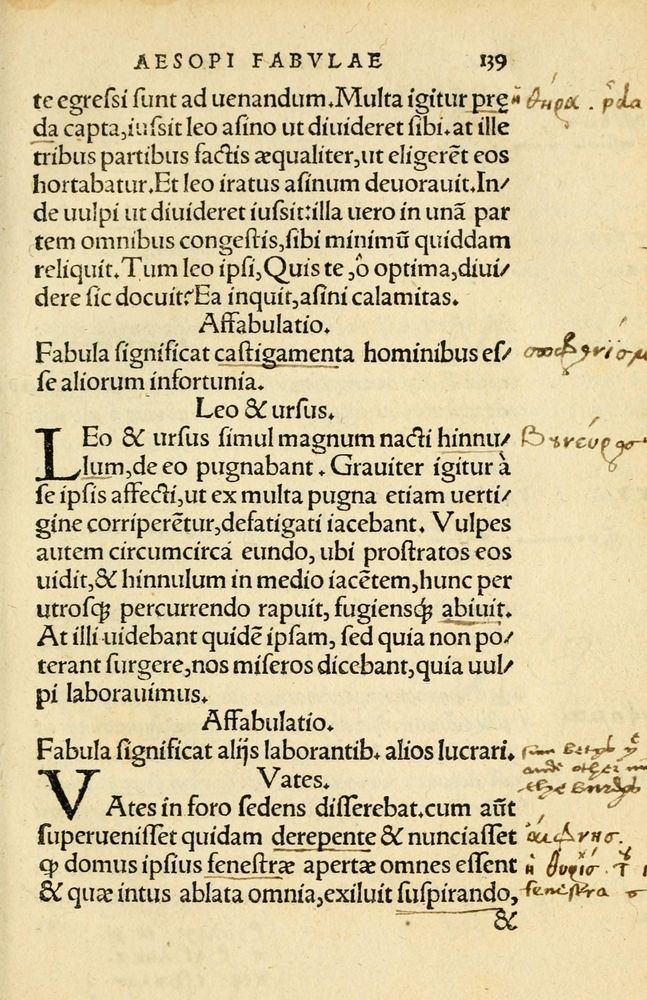 AESOPI FABVLAE 139
te egressi sunt ad uenandum. Multa igitur prę
da capta, iussit leo asino ut diuideret sibi. at ille
tribus partibus factis æqualiter, ut eligerēt eos
hortabatur. Et leo iratus asinum deuorauit. In/
de uulpi ut diuideret iussit: illa uero in unā par
tem omnibus congestis, sibi minimū quiddam
reliquit. Tum leo ipsi, Quis te, ô optima, diui/
dere sic docuit? Ea inquit, asini calamitas.
Affabulatio.
Fabula significat castigamenta hominibus es/
se aliorum infortunia.
Leo & ursus.
LEo & ursus simul magnum nacti hinnu/
lum, de eo pugnabant. Grauiter igitur à
se ipsis affecti, ut ex multa pugna etiam uerti/
gine corriperētur, defatigati iacebant. Vulpes
autem circumcircá eundo, ubi prostratos eos
uidit, & hinnulum in medio iacētem, hunc per
utrosq; percurrendo rapuit, fugiensq; abiuit.
At illi uidebant quidē ipsam, sed quia non po/
terant surgere, nos miseros dicebant, quia uul/
pi laborauimus.
Affabulatio.
Fabula significat alijs laborantib. alios lucrari.
Vates.
VAtes in foro sedens disserebat. cum aūt
superuenisset quidam derepente & nunciasset
ꝙ domus ipsius fenestræ apertæ omnes essent
& quæ intus ablata omnia, exiluit suspirando,
&
ἡ θήρα.
ἡ θυρίς.
fenestra